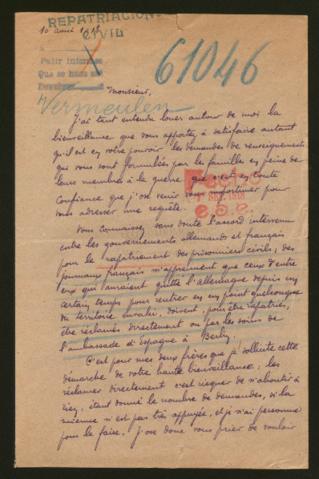 REPATRIACION
CIVIL
10 août
61046
Vermeulen
Monsieur,
J'ai tant entendu louer autour de moi la
bienveillance que vous apportez à satisfaire autant
qu'il est en votre pouvoir les demandes de renseignements
que vous sont formulées par les familles en peine de
leurs membres à la guerre que c'est en toute
confiance que j'ose venir vous importuner pour
vous adresser une requête.
Vous connaissez sans doute l'accord intervenu
entre les gouvernements allemands et français
pour le rapatriement des prisonniers civils; des
journaux français m'apprennent que ceux d'entre
eux qui auraient quitté l'Allemagne depuis un
certain temps pour rentrer en un point quelconque
de territoire envahi, doivent, pour être rapatriés,
être réclamés directement ou par les soins de
l'ambassade d'Espagne à Berlin.
C'est pour mes deux frères que je sollicite cette
démarche de votre haute bienveillance; les
réclamer directement c'est risquer de n'aboutir à
rien, étant donné le nombre de demandes, si la
mienne n'est pas très appuyée, et je n'ai personne
pour le faire. J'ose donc vous prier de vouloir